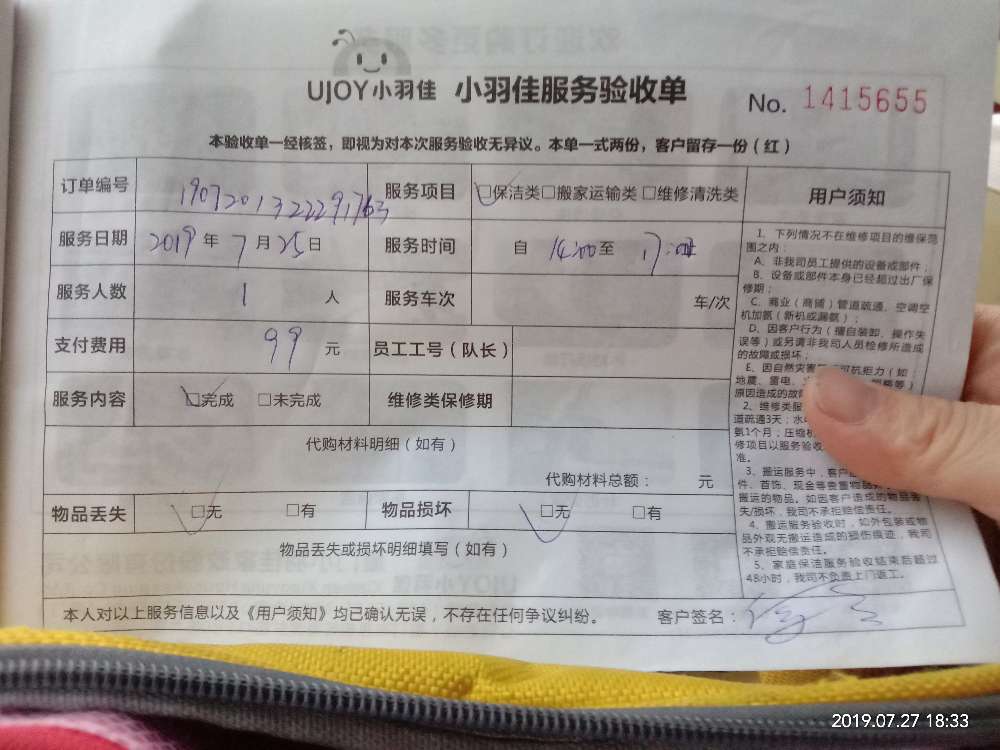 UJOY小羽佳 小羽佳服务验收单 No. 1415655
本验收单一经核签，即视为对本次服务验收无异议。本单一式两份，客户留存一份（红）
订单编号 1907201322291763 服务项目 □保洁类□搬家运输类□维修清洗类 用户须知
服务日期 2019年7月25日 服务时间 自 14:00至 17:00
服务人数 1 人 服务车次 车/次
支付费用 99 元 员工工号（队长）
服务内容 □完成 □未完成 维修类保修期
代购材料明细（如有）
代购材料总额： 元
物品丢失 □无 □有 物品损坏 □无 □有
物品丢失或损坏明细填写（如有）
1、下列情况不在维修项目的维保范
围之内：
A、非我司员工提供的设备或部件；
B、设备或部件本身已经超过出厂保
修期；
C、商业（商铺）管道疏通、空调空
机加氨（新机或漏氨）；
D、因客户行为（擅自装卸、操作失
误等）或另请非我司人员检修所造成
的故障或损坏；
E、因自然灾害 可抗拒力（如：
地震、雷电、 等）
原因造成的故
2、维修类服
道疏通3天；水
氨1个月；压缩机
修项目以服务验收
准。
3、搬运服务中，客户
件、首饰、现金等贵重物品
搬运的物品。如因客户造成的物品丢
失/损坏，我司不承担赔偿责任。
4、搬运服务验收时，如外包装或物
品外观无搬运造成的损伤痕迹，我司
不承担赔偿责任。
5、家庭保洁服务验收结束后超过
48小时，我司不负责上门返工。
本人对以上服务信息以及《用户须知》均已确认无误，不存在任何争议纠纷。 客户签名：
2019.07.27 18:33